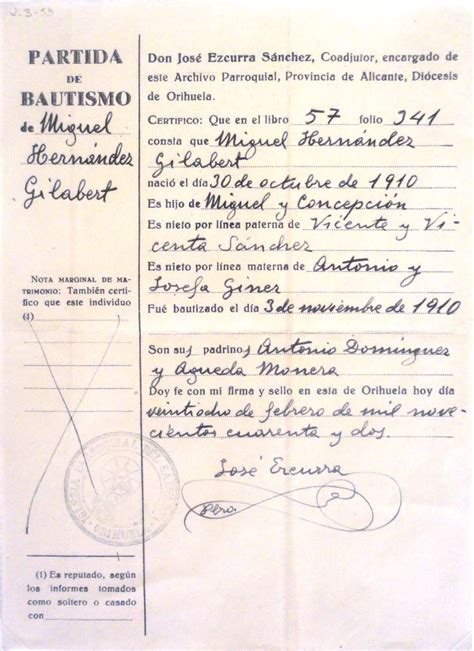 2-3-53
PARTIDA
DE
BAUTISMO
de Miguel
Hernández
Gilabert
NOTA MARGINAL DE MA-
TRIMONIO: También certi-
fico que este individuo
(1)
(1) Es reputado, según
los informes tomados
como soltero o casado
con
Don José Ezcurra Sánchez, Coadjutor, encargado de
este Archivo Parroquial, Provincia de Alicante, Diócesis
de Orihuela.
CERTIFICO: Que en el libro 57 folio 341
consta que Miguel Hernández
Gilabert
nació el día 30 de octubre de 1910
Es hijo de Miguel y Concepción
Es nieto por línea paterna de Vicente y Vi-
centa Sánchez
Es nieto por línea materna de Antonio y
Josefa Giner
Fué bautizado el día 3 de noviembre de 1910
Son sus padrinos Antonio Domínguez
y Agueda Monera
Doy fe con mi firma y sello en esta de Orihuela hoy día
veintiocho de febrero de mil nove-
cientos cuarenta y dos.
José Ezcurra
Pbro